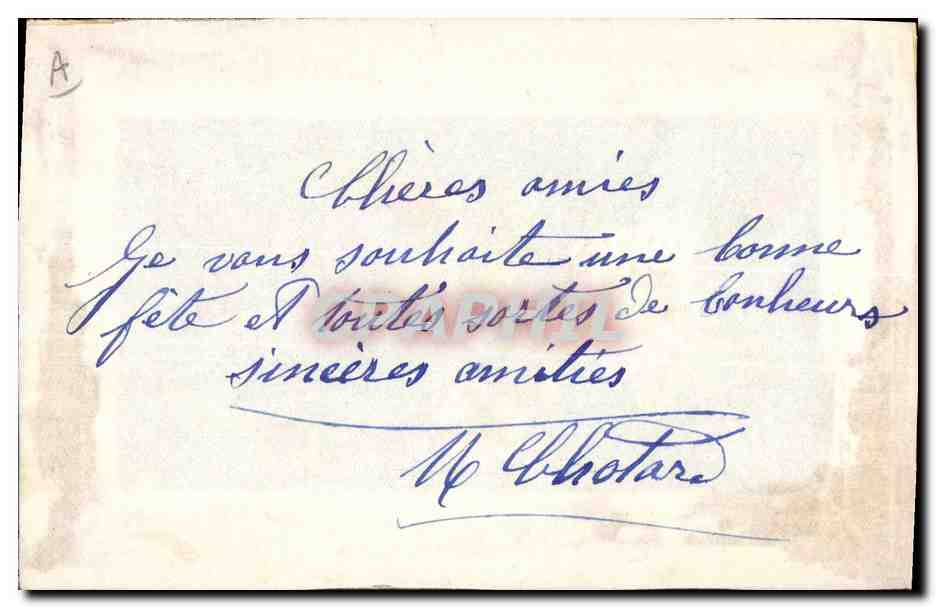 A
Chères amies
Je vous souhaite une bonne
fête et toutes sortes de bonheurs
sincères amitiés
M Chotard
CPAPHIL